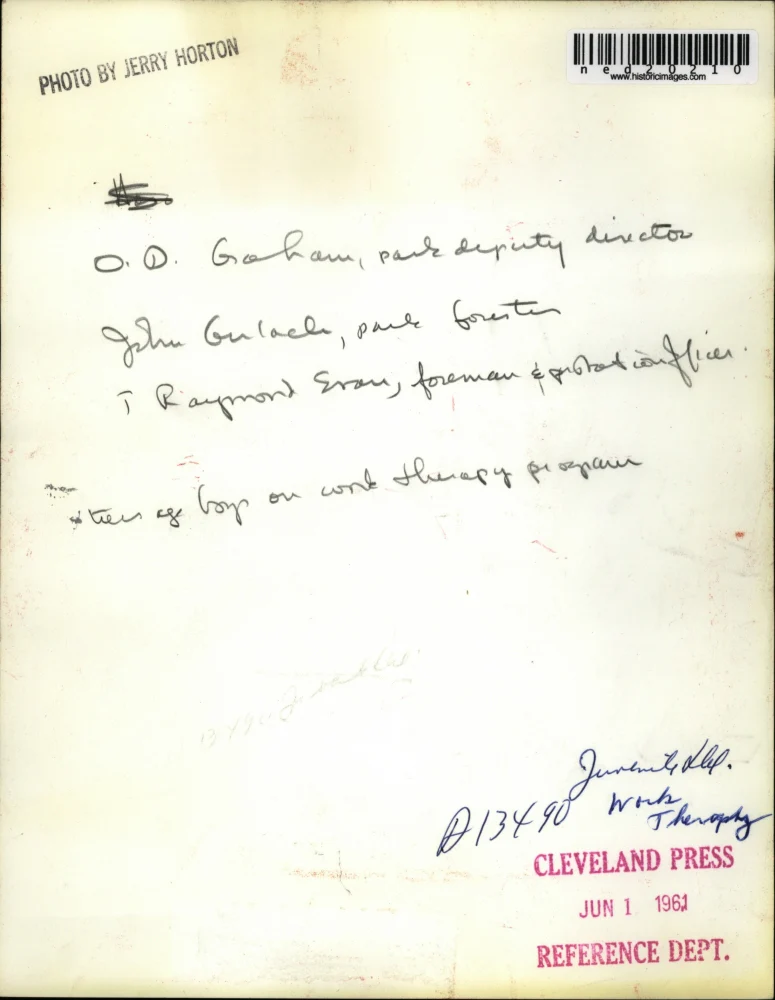 PHOTO BY JERRY HORTON
ned20210
www.historicimages.com
O. D. Graham, park deputy director
John Gerlach, park forester
T Raymond Evans, foreman & probation officer.
teen age boys on work therapy program
Juvenile Del.
Work
Therapy
A13490
CLEVELAND PRESS
JUN 1 1961
REFERENCE DEPT.